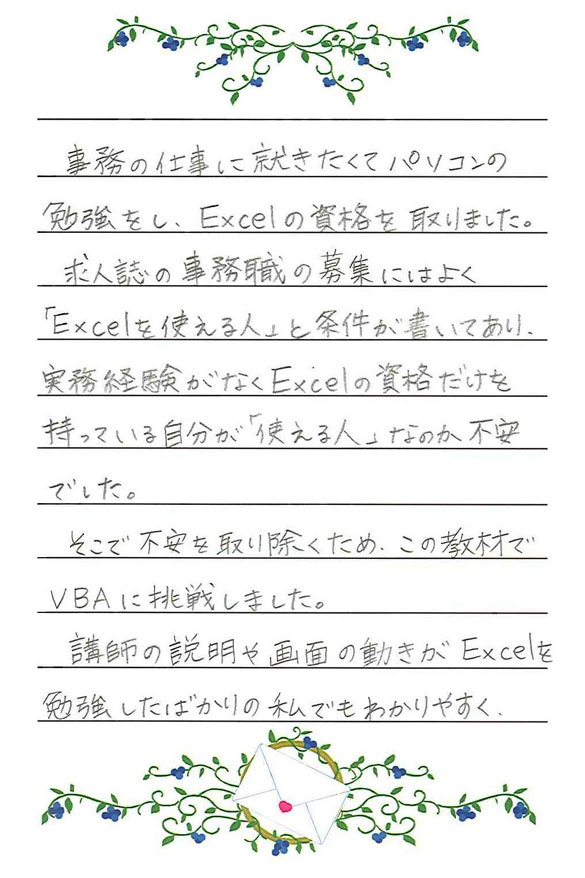 事務の仕事に就きたくてパソコンの
勉強をし、Excelの資格を取りました。
求人誌の事務職の募集にはよく
「Excelを使える人」と条件が書いてあり、
実務経験がなくExcelの資格だけを
持っている自分が「使える人」なのか不安
でした。
そこで不安を取り除くため、この教材で
VBAに挑戦しました。
講師の説明や画面の動きがExcelを
勉強したばかりの私でもわかりやすく、